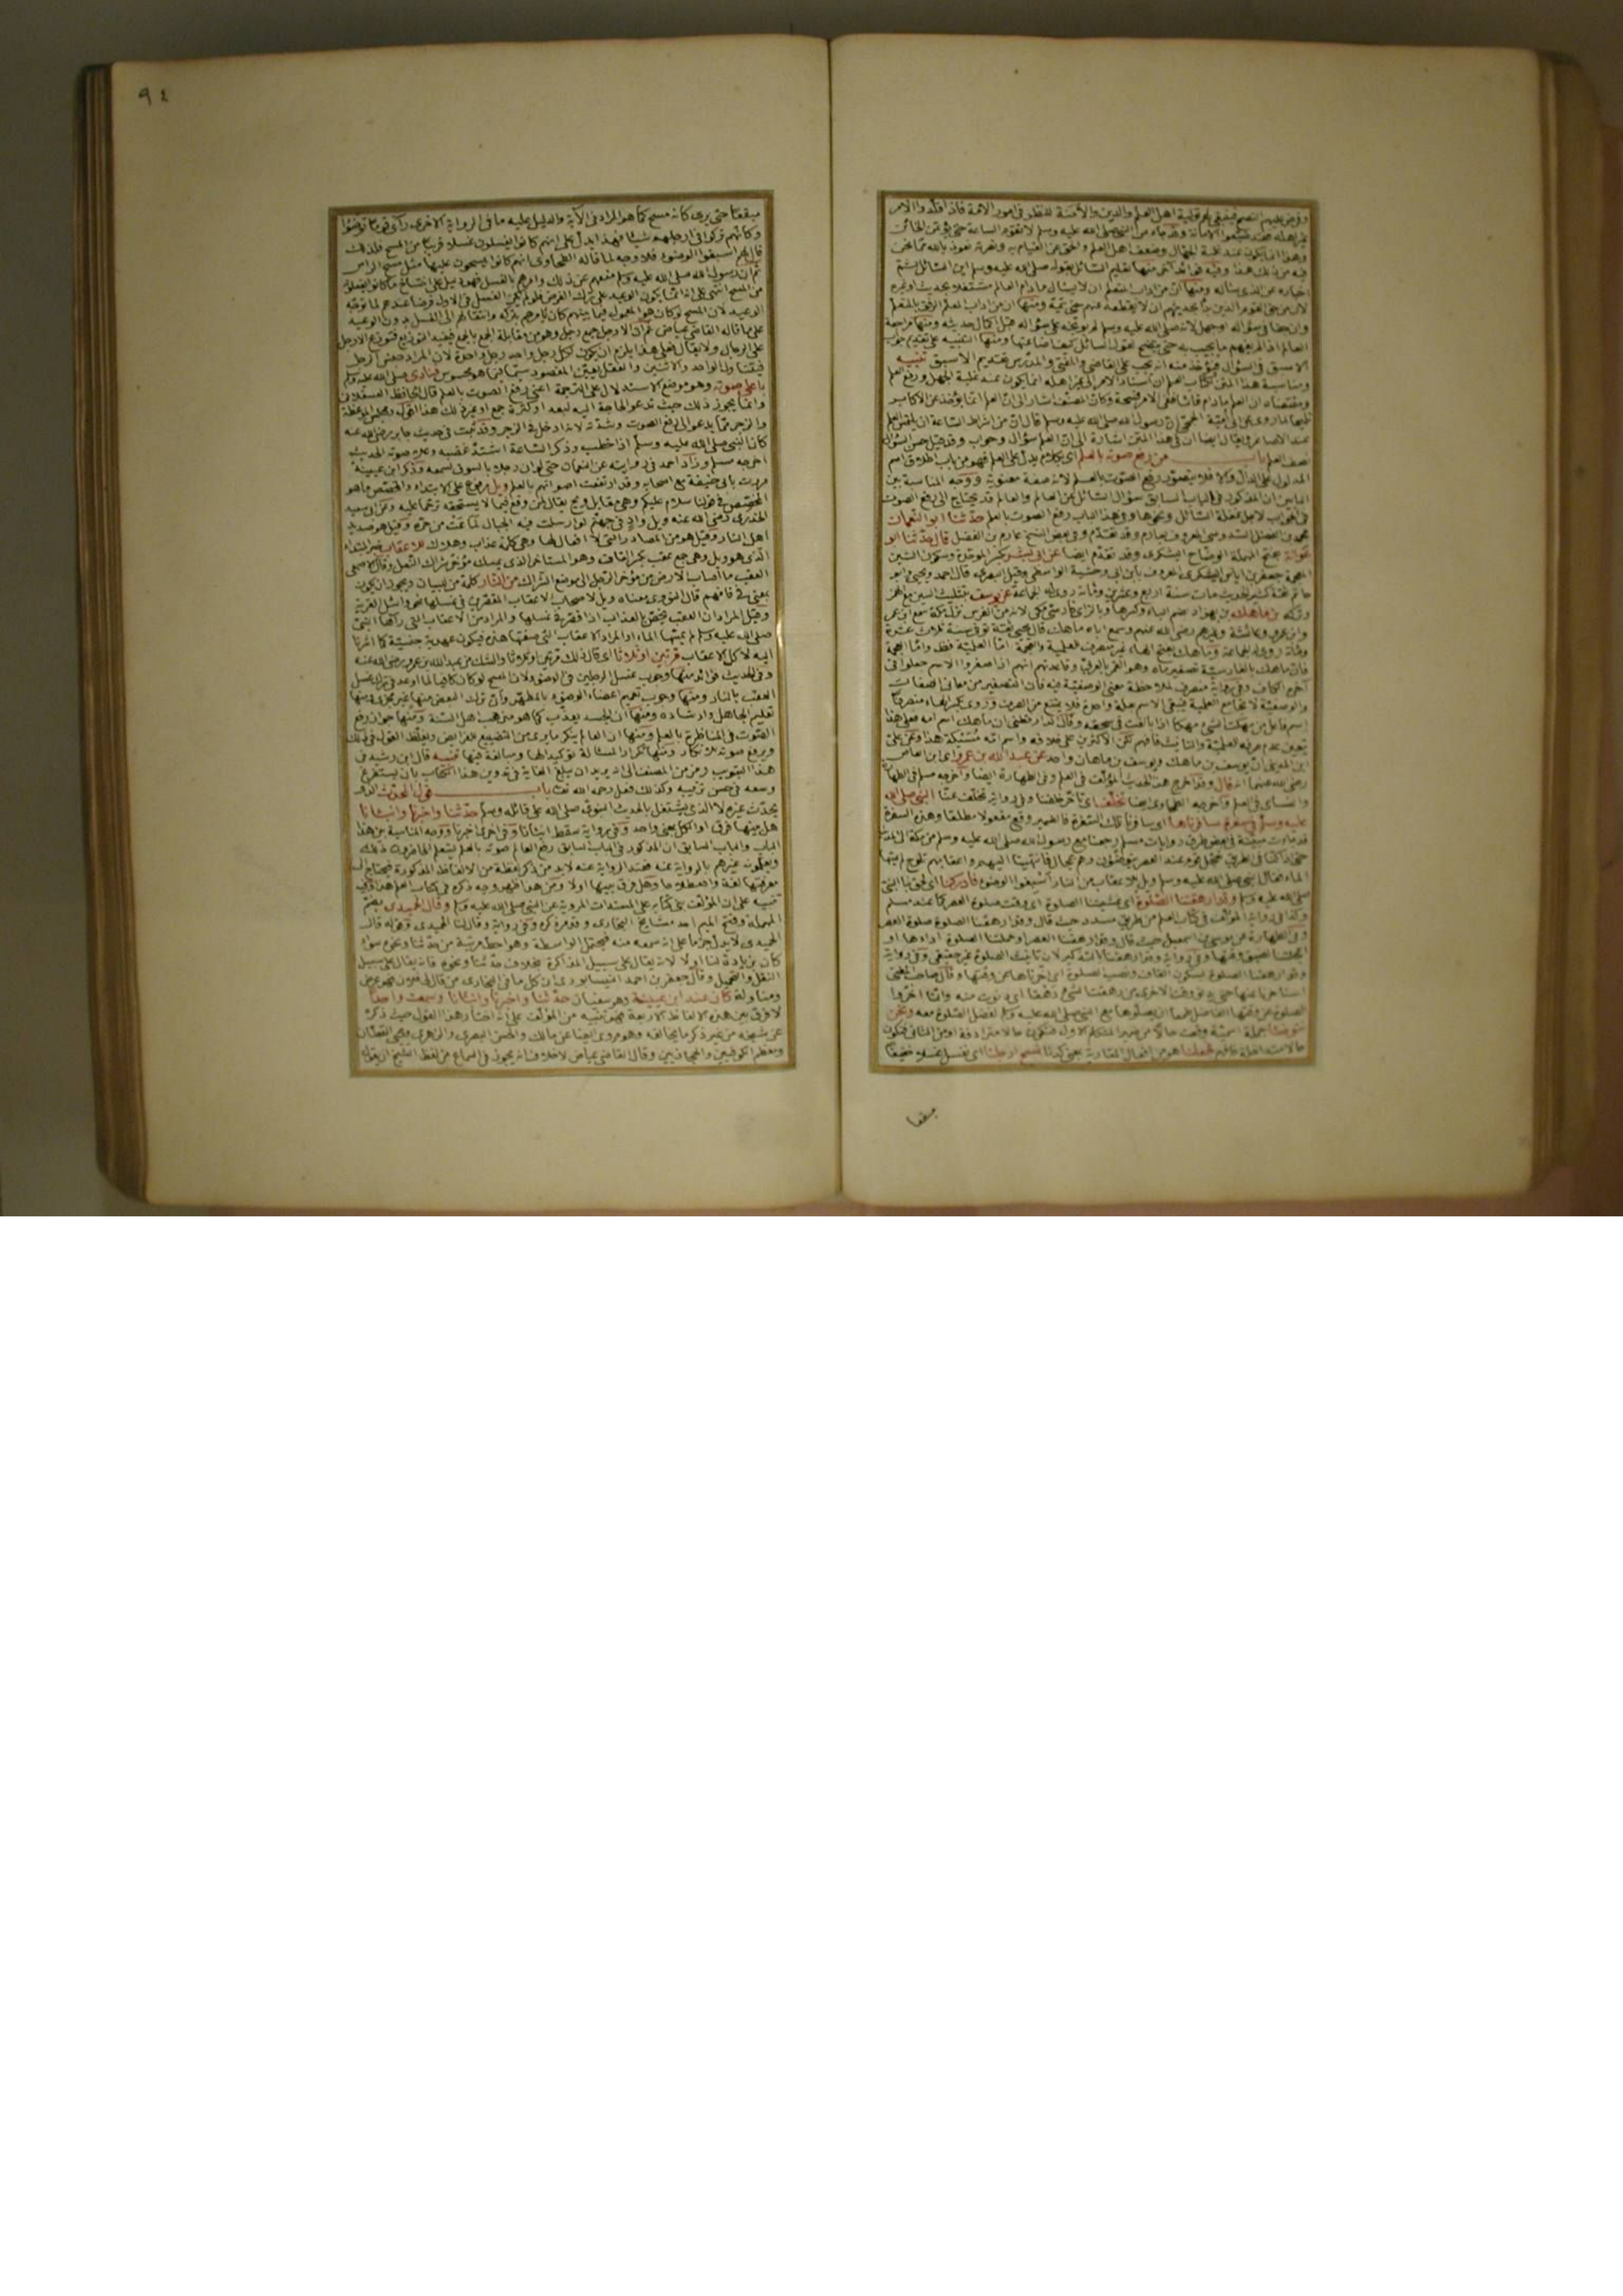 وفرض عليهم النصح فينبغي لهم تولية اهل العلم والدين والأمنة للنظر في امور الامة فاذا قلدوا الامر
غير اهله فقد ضيعوا الامانة وقد جاء عن النبي صلى الله عليه وسلم لا تقوم الساعة حتى يؤتمن الخائن
وهذا انما يكون عند غلبة الجهال وضعف اهل العلم والحق عن القيام به ونصرته نعوذ بالله مما نحن
فيه من ذلك هذا وفيه فوائد اخر منها تعليم السائل لقوله صلى الله عليه وسلم اين السائل ثم
اخباره عن الذي سأله ومنها ان من اداب المتعلم ان لا يسأل ما دام العالم مشتغلا بحديث او غيره
لان من حق القوم الذين بدأ بحديثهم ان لا يقطعه عنهم حتى يتمه ومنها ان من اداب المعلم الرفق بالمتعلم
وان جفا في سؤاله او جهل لانه صلى الله عليه وسلم لم يوبخه على سؤاله قبل اكمال حديثه ومنها مراجعة
العالم اذا لم يفهم ما يجيب به حتى يتضح لقول السائل كيف اضاعتها ومنها التنبيه على تقديم
الاسبق في السؤال فيؤخذ منه انه يجب على القاضي والمفتي والمدرس تقديم الاسبق تنبيه
ومناسبة هذا المتن لكتاب العلم ان اسناد الامر الى غير اهله انما يكون عند غلبة الجهل ورفع العلم
ومقتضاه ان العلم ما دام قائما ففي الامر فسحة وكان المصنف اشار الى ان العلم انما يؤخذ عن الاكابر
تلميحا لما روى عن ابي امية الجمحي ان رسول الله صلى الله عليه وسلم قال ان من اشراط الساعة ان يلتمس العلم
عند الاصاغر ويقال ايضا ان في هذا المتن اشارة الى ان العلم سؤال وجواب وقد قيل حسن السؤال
نصف العلم باب من رفع صوته بالعلم اي بكلام يدل على العلم فهو من باب اطلاق اسم
المدلول على الدال والا فلا يتصور رفع الصوت بالعلم لانه صفة معنوية ووجه المناسبة بين
البابين ان المذكور في الباب السابق سؤال السائل عن العالم والعالم قد يحتاج الى رفع الصوت
في الجواب لاجل غفلة السائل ونحوها وفي هذا الباب رفع الصوت بالعلم حدثنا ابو النعمان
محمد بن الفضل السدوسي المعروف بعارم وقد تقدم وفي بعض النسخ عارم بن الفضل قال حدثنا ابو
عوانة بفتح المهملة الوضاح اليشكري وقد تقدم ايضا عن ابي بشر بكسر الموحدة وسكون الشين
المعجمة جعفر بن اياس اليشكري المعروف بابن ابي وحشية الواسطي وقيل البصري قال احمد ويحيى وابو
حاتم ثقة كثير الحديث مات سنة اربع وعشرين ومائة روى له الجماعة عن يوسف بتثليث السين مع الهمز
وتركه بن ماهك بن بهزاد بضم الباء وكسرها وبالزاي فارسي مكي لانه من الفرس نزل مكة سمع ابن عمر
وابن عمرو وعائشة وغيرهم رضي الله عنهم وسمع اباه ماهك قال يحيى ثقة توفي سنة ثلاث عشرة
ومائة روى له الجماعة وماهك بفتح الهاء غير منصرف للعلمية والعجمة اما العلمية فظ واما العجمة
فان ماهك بالفارسية تصغير ماه وهو القمر بالعربي وقاعدتهم انهم اذا صغروا الاسم جعلوا في
آخره الكاف وفي رواية منصرف لملاحظة معنى الوصفية فيه فان التصغير من معاني الصفات
والوصفية لا تجامع العلمية فيبقى الاسم بعلة واحدة فلا يمتنع من الصرف وروى بكسر الهاء منصرفا
اسم فاعل من مهكت الشيء مهكا اذا بالغت في سحقه وقال الدارقطني ان ماهك اسم امه فعلى هذا
يتعين عدم صرفه للعلمية والتأنيث فافهم لكن الاكثرين على خلافه واسم امه مسيكة هذا وعن علي
ابن المديني ان يوسف بن ماهك ويوسف بن ماهان واحد عن عبد الله بن عمرو اي ابن العاص
رضي الله عنهما انه قال وقد اخرج هذا الحديث المؤلف في العلم وفي الطهارة ايضا واخرجه مسلم في الطهارة
والنسائي في العلم واخرجه الطحاوي ايضا تخلف اي تأخر خلفنا وفي رواية تخلف عنا النبي صلى الله
عليه وسلم في سفرة سافرناها اي سافرنا تلك السفرة فالضمير وقع مفعولا مطلقا وهذه السفرة
قد جاءت مبينة في بعض طرق روايات مسلم رجعنا مع رسول الله صلى الله عليه وسلم من مكة الى المدينة
حتى اذا كنا في طريق تعجل قوم عند العصر يتوضؤن وهم عجال فانتهينا اليهم واعقابهم تلوح لم يمسها
الماء فقال النبي صلى الله عليه وسلم ويل للاعقاب من النار اسبغوا الوضوء فادركنا اي لحق بنا النبي
صلى الله عليه وسلم وقد ارهقتنا الصلوة اي غشيتنا الصلوة اي وقت صلوة العصر كما عند مسلم
وكذا في رواية المؤلف في كتاب العلم من طريق مسدد حيث قال وقد ارهقتنا الصلوة صلوة العصر
وفي الطهارة من موسى بن اسمعيل حيث قال وقد ارهقنا العصر او حملتنا الصلوة اداءها او
اعجلتنا لضيق وقتها وفي رواية وقد ارهقنا بالتذكير لان تأنيث الصلوة غير حقيقي وفي رواية
وقد ارهقنا الصلوة بسكون القاف ونصب الصلوة اي اخرناها عن وقتها
الصلوة عن وقتها الفاضل طمعا ان يصلوها مع النبي صلى الله عليه وسلم لفضل الصلوة معه ونحن
نتوضأ جملة اسمية وقعت حالا
فجعلنا هو من افعال المقاربة نمسح على ارجلنا اي نغسل غسلا خفيفا
مبقعا
٩٤
مبقعا حتى يرى كانه مسح كما هو المراد في الآية والدليل عليه ما في الرواية الاخرى رأى قوما توضؤا
وكانهم تركوا في ارجلهم شيئا فهذا يدل على انهم كانوا يغسلون غسلا قريبا من المسح فلذلك
قال لهم اسبغوا الوضوء فلا وجه لما قاله الطحاوي انهم كانوا يمسحون عليها مثل مسح الراس
ثم ان رسول الله صلى الله عليه وسلم منعهم عن ذلك وامرهم بالغسل فهو دليل على انتساخ ما كانوا يفعلونه
من المسح انتهى اذ انما يكون الوعيد على ترك الفرض فلو لم يكن الغسل في الاول فرضا عندهم لما توجه
الوعيد لان المسح لو كان هو المعمول فيما بينهم كان يأمرهم بتركه وانتقالهم الى الغسل بدون الوعيد
على ما قاله القاضي عياض ثم ان الارجل جمع رجل وهو من مقابلة الجمع بالجمع فيفيد التوزيع فتوزع الارجل
على الرجال ولا يقال فعلى هذا يلزم ان يكون لكل رجل واحد رجل واحدة لان المراد جنس الرجل
فيتناول الواحد والاثنين والعقل يعين المقصود سيما فيما هو محسوس فنادى صلى الله عليه وسلم
باعلى صوته وهو موضع الاستدلال على الترجمة اعني رفع الصوت بالعلم قال الحافظ العسقلاني
وانما يجوز ذلك حيث تدعو الحاجة اليه لبعد او كثرة جمع او غير ذلك
والزجر مما يدعو الى رفع الصوت وشدته لانه ادخل في الزجر وقد ثبت في حديث جابر رضي الله عنه
كان النبي صلى الله عليه وسلم اذا خطب وذكر الساعة اشتد غضبه وعلا صوته الحديث
اخرجه مسلم وزاد احمد في روايته عن النعمان حتى لو ان رجلا بالسوق لسمعه وذكر ابن عيينة
مررت بابي حنيفة مع اصحابه وقد ارتفعت اصواتهم بالعلم ويل مرفوع على الابتداء والمخصص ما هو
المخصص في قولنا سلام عليكم وهي مقابل ويح يقال لمن وقع فيما لا يستحقه ترحما عليه وعن ابي سعيد
الخدري رضي الله عنه ويل واد في جهنم لو ارسلت فيه الجبال لماعت من حره وقيل هو صديد
اهل النار وقيل هو من المصادر التي لا افعال لها وهي كلمة عذاب وهلاك للاعقاب خبر المبتدأ
الذي هو ويل وهي جمع عقب بكسر القاف وهو المستأخر الذي يمسك مؤخر شراك النعل وقال الاصمعي
العقب ما اصاب الارض من مؤخر الرجل الى موضع الشراك من النار كلمة من للبيان ويجوز ان يكون
بمعنى في فافهم قال البغوي معناه ويل لاصحاب الاعقاب المقصرين في غسلها نحو واسأل القرية
وقيل المراد ان العقب يختص بالعذاب اذا قصر في غسلها والمراد من الاعقاب التي رآها النبي
صلى الله عليه وسلم لم يمسها الماء او المراد الاعقاب التي صفتها هذه فيكون عهدية جنسية كما اشرنا
اليه لا كل الاعقاب مرتين او ثلاثا اي قال ذلك مرتين او ثلاثا والشك من عبد الله بن عمرو رضي الله عنه
وفي الحديث فوائد منها وجوب غسل الرجلين في الوضوء لان المسح لو كان كافيا لما اوعد في ترك غسل
العقب بالنار ومنها وجوب تعميم اعضاء الوضوء بالمطهر وان ترك البعض منها غير مجزئ ومنها
تعليم الجاهل وارشاده ومنها ان الجسد يعذب كما هو مذهب اهل السنة ومنها جواز رفع
الصوت في المناظرة بالعلم ومنها ان العالم ينكر ما يرى من التضييع للفرائض ويغلظ القول في ذلك
ويرفع صوته للانكار ومنها تكرار المسئلة توكيدا لها ومبالغة فيها تنبيه قال ابن رشيد في
هذا التبويب رمز من المصنف الى انه يريد ان يبلغ الغاية في تدوين هذا الكتاب بان يستفرغ
وسعه في حسن ترتيبه وكذلك فعل رحمه الله تعالى باب قول المحدث الذي
يحدث غيره لا الذي يشتغل بالحديث النبوي صلى الله على قائله وسلم حدثنا واخبرنا وانبأنا
هل بينها فرق او الكل بمعنى واحد وفي رواية سقط انبأنا وفي اخرى اخبرنا ووجه المناسبة بين هذا
الباب والباب السابق ان المذكور في الباب السابق رفع العالم صوته بالعلم ليتعلم الحاضرون ذلك
ويعلمون غيرهم بالرواية عنه فعند الرواية عنه لابد من ذكر لفظة من الالفاظ المذكورة فيحتاج الى
معرفتها لغة واصطلاحا وهل فرق بينها اولا ومن هذا ظهر وجه ذكره في كتاب العلم
تنبيه على ان المؤلف بنى كتابه على المسندات المروية عن النبي صلى الله عليه وسلم وقال الحميدي بضم
المهملة وفتح الميم احد مشايخ البخاري وقد مر ذكره وفي رواية وقال لنا الحميدي وقوله قال
الحميدي لا يدل جزما على انه سمعه منه فيحتمل الواسطة وهو احط مرتبة من حدثنا ونحوه سواء
كان بزيادة لنا اولا لانه يقال على سبيل المذاكرة بخلاف حدثنا ونحوه فانه يقال على سبيل
النقل والتحميل وقال جعفر بن احمد النيسابوري ان كل ما في البخاري من قال لي فلان فهو عرض
ومناولة كان عند ابن عيينة وهو سفيان حدثنا واخبرنا وانبأنا وسمعت واحدا
لا فرق بين هذه الالفاظ الاربعة فهو تنبيه من المؤلف على انه اختار هذا القول حيث ذكره
عن شيخه من غير ذكر ما يخالفه وهو مروي ايضا عن مالك والحسن البصري والزهري ويحيى القطان
ومعظم الكوفيين والحجازيين وقال القاضي عياض لا خلاف انه يجوز في السماع من لفظ الشيخ ان يقول